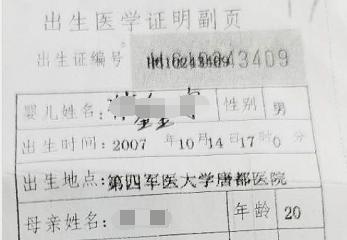 出生医学证明副页
出生证编号
婴儿姓名: 性别 男
出生时间: 2007 年 10 月 14 日 17 时 0 分
出生地点: 第四军医大学唐都医院
母亲姓名: 年龄 20